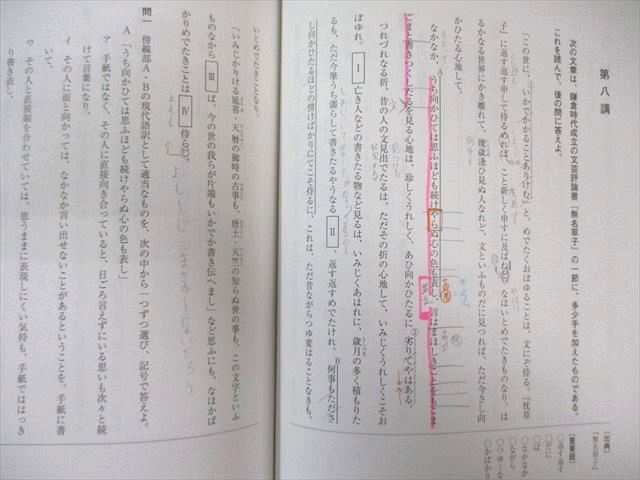 第八講
次の文章は、鎌倉時代成立の文芸評論書「無名草子」の一節に、多少手を加えたものである。
これを読んで、後の問に答えよ。
「この世に、いかでかかることありけむ」と、めでたくおぼゆることは、文にぞ侍る。『枕草
子』に返す返す申して侍るめれば、こと新しく申すに及ばねど、なほいとめでたきものなり。は
るかなる世界にかき離れて、幾歳逢ひ見ぬ人なれど、文といふものだに見つれば、ただ今さし向
かひたる心地して、
なかなか、うち向かひては思ふほども続けやらぬ心の色も表し、言はまほしきことをもこま
ごまと書きつくしたるを見る心地は、珍しくうれしく、あひ向かひたるに劣りてやはある。
つれづれなる折、昔の人の文見出でたるは、ただその折の心地して、いみじくうれしくこそお
ぼゆれ。 Ⅰ 亡き人などの書きたる物など見るは、いみじくあはれに、歳月の多く積もりた
るも、ただ今筆うち濡らして書きたるやうなる Ⅱ 、返す返すめでたけれ。何事もたださ
し向かひたるほどの情けばかりにてこそ侍るに、これは、ただ昔ながらつゆ変はることなきも、
いとめでたきことなり。
「いみじかりける延喜・天暦の御時の古事も、唐土・天竺の知らぬ世の事も、この文字といふ
ものなから Ⅲ ば、今の世の我らが片端もいかでか書き伝へまし」など思ふにも、なほかば
かりめでたきことは Ⅳ 侍らじ。
問一 傍線部A・Bの現代語訳として適当なものを、次の中から一つずつ選び、記号で答えよ。
A 「うち向かひては思ふほども続けやらぬ心の色も表し」
ア 手紙ではなく、その人に直接向き合っていると、日ごろ言えずにいる思いも次々と続
けて言葉になり、
イ その人に面と向かっては、なかなか言い出せないことがあるということを、手紙に書
いて、
ウ その人と直接顔を合わせていては、思うままに表現しにくい気持ちも、手紙でははっき
り書き表し、
〔出典〕
『無名草子』
〔重要語〕
○返す返す
○だに
○は
○ながら
○つゆ〜な
○かばかり